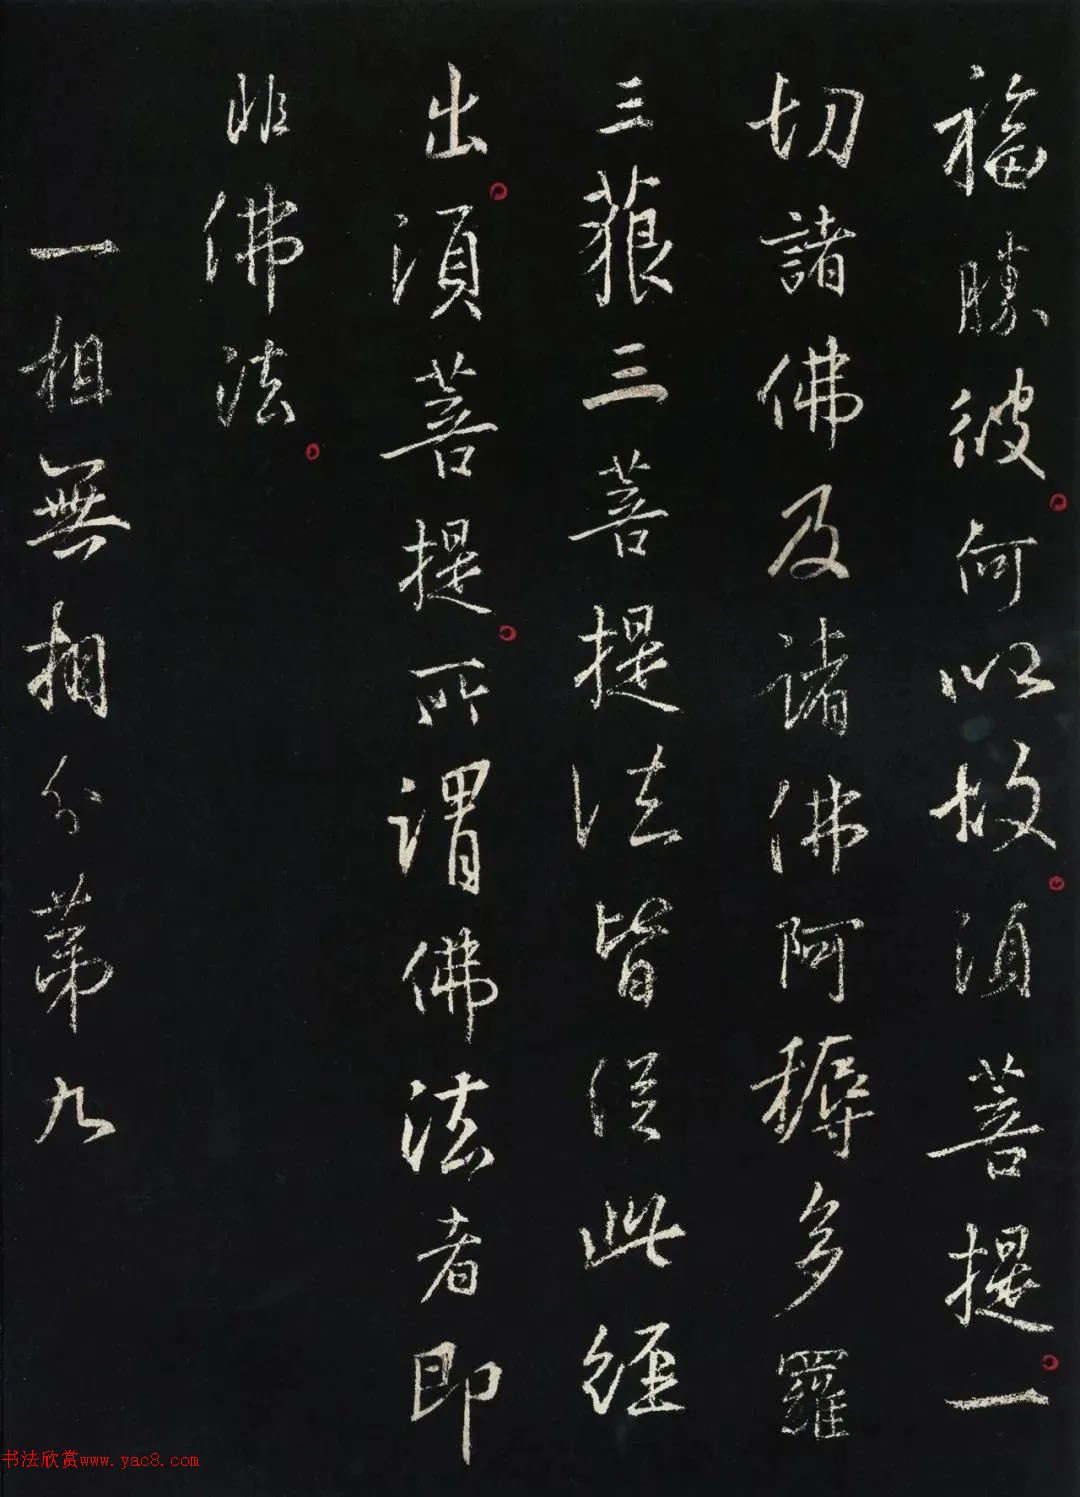 福勝彼何以故須菩提一
切諸佛及諸佛阿耨多羅
三藐三菩提法皆從此經
出須菩提所謂佛法者即
非佛法
一相無相分第九
书法欣赏www.yac8.com